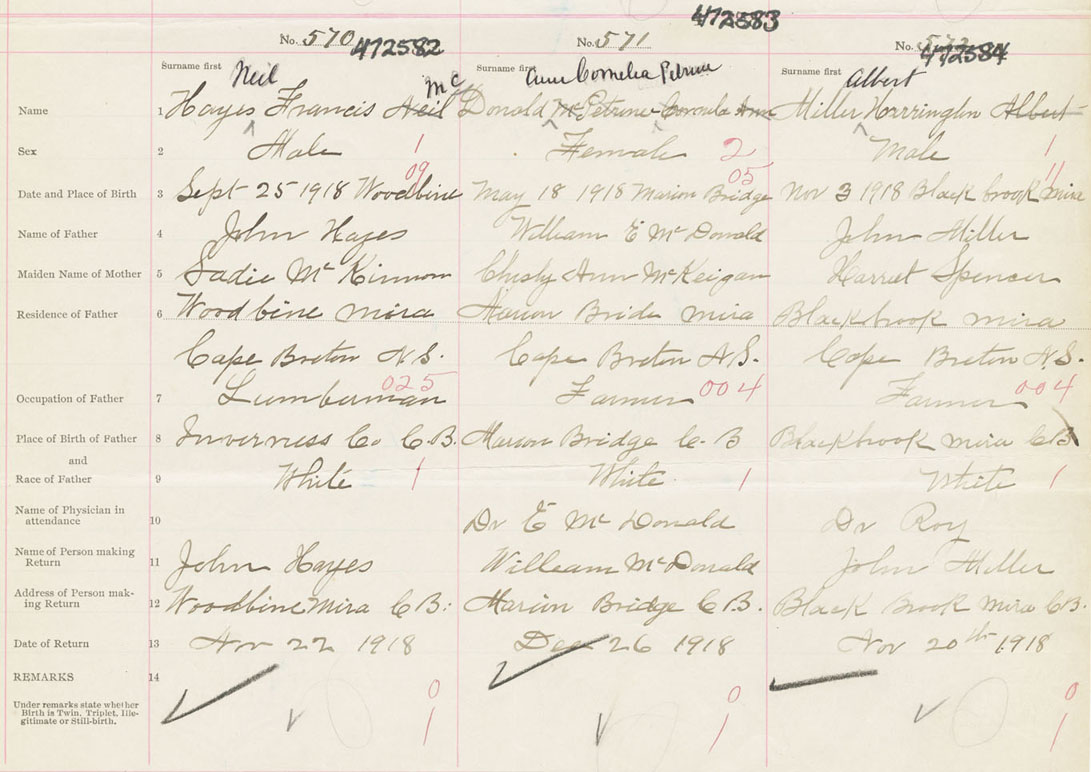 472583
No. 570 472582 No. 571 No. 572 472584
Surname first Neil Mc Surname first Ann Cornelia Petrina Surname first Albert
Name 1 Hayes Francis Neil Donald Mc Petrina Cornelia Ann Miller Harrington Albert
Sex 2 Male 1 Female 2 Male 1
09 05 11
Date and Place of Birth 3 Sept 25 1918 Woodbine May 18 1918 Marion Bridge Nov 3 1918 Black brook Mira
Name of Father 4 John Hayes William E McDonald John Miller
Maiden Name of Mother 5 Sadie McKinnon Ann McKeigan Harriet Spencer
Residence of Father 6 Woodbine Mira Marion Bride Mira Blackbrook Mira
Cape Breton N.S. Cape Breton N.S. Cape Breton N.S.
025 004 004
Occupation of Father 7 Lumberman Farmer Farmer
Place of Birth of Father 8 Inverness Co C.B. Marion Bridge C.B Blackbrook Mira CB
and
Race of Father 9 White 1 White 1 White 1
Name of Physician in
attendance 10 Dr E McDonald Dr Roy
Name of Person making
Return 11 John Hayes William McDonald John Miller
Address of Person mak-
ing Return 12 Woodbine Mira C B. Marion Bridge C B. Black Brook Mira C.B.
Date of Return 13 Nov 22 1918 Dec 26 1918 Nov 20th 1918
REMARKS 14
0 0 0
Under remarks state whether
Birth is Twin, Triplet, Ille-
gitimate or Still-birth. 1 1 1